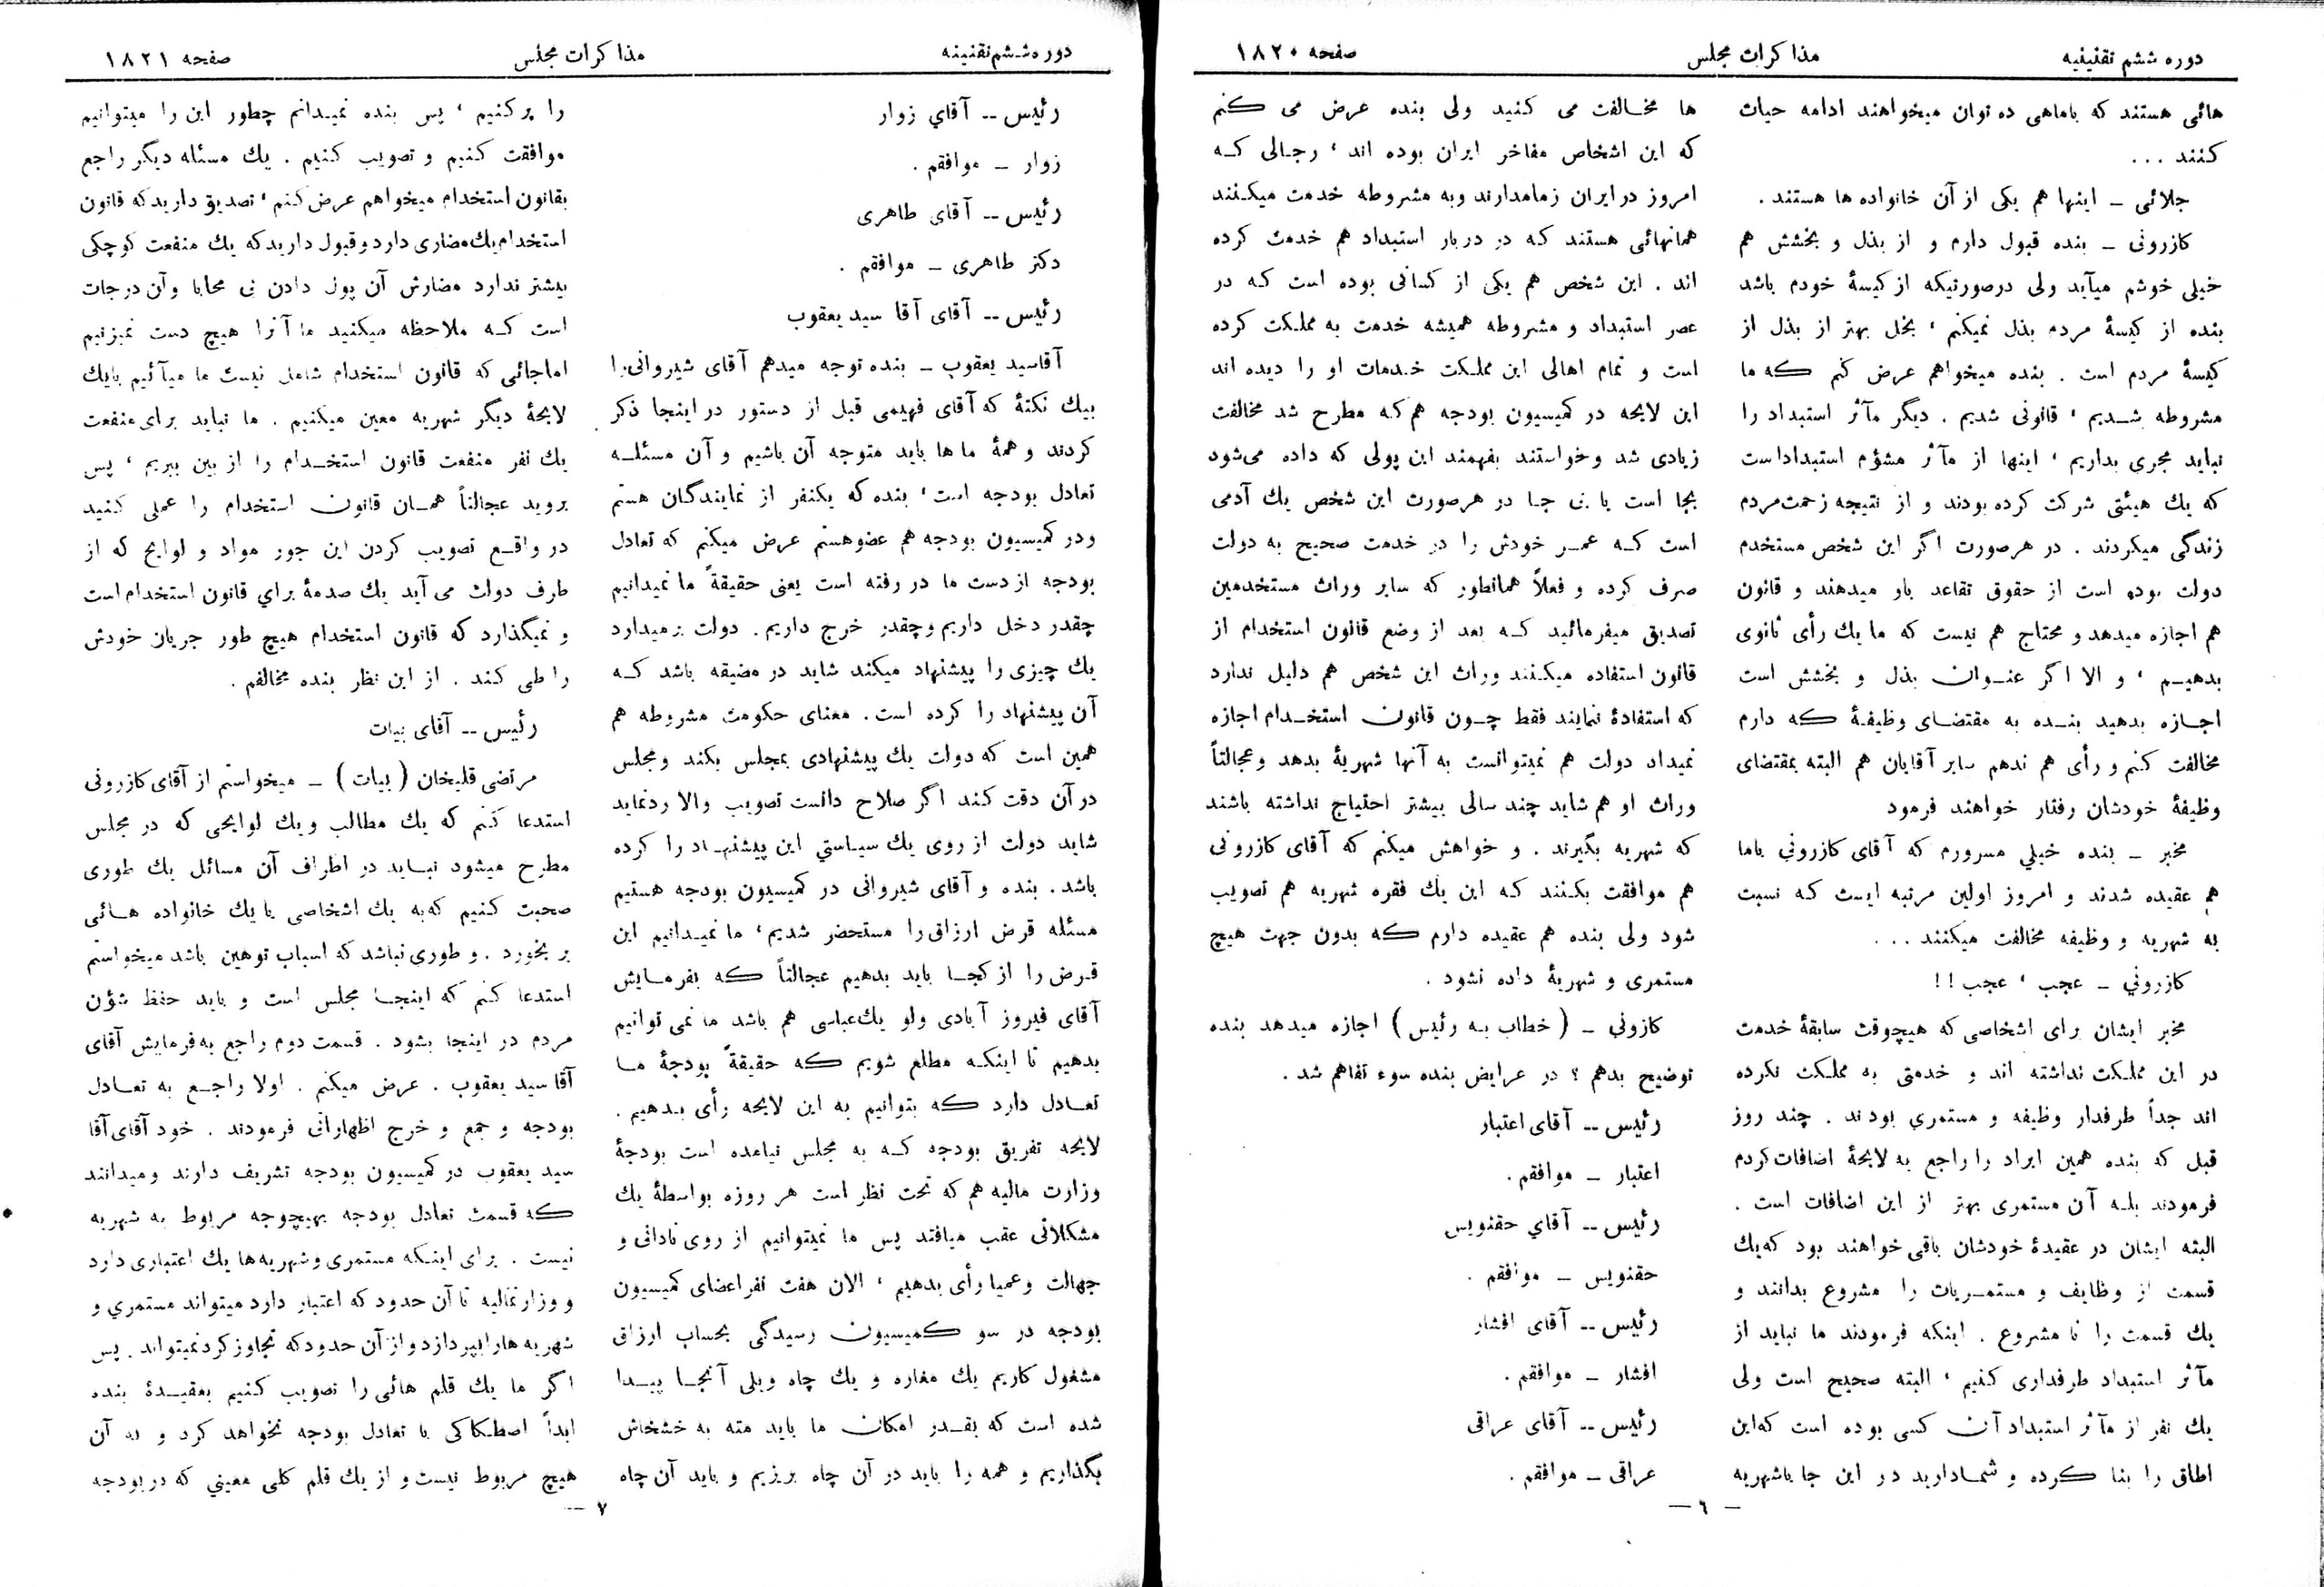 دوره ششم تقنینیه
مذاکرات مجلس
صفحه ۱۸۲۰
هائی هستند که باماهی ده تومان میخواهند ادامه حیات
کنند ...
جلائی ـ اینها هم یکی از آن خانواده ها هستند .
کازرونی ـ بنده قبول دارم و از بذل و بخشش هم
خیلی خوشم میآید ولی درصورتیکه از کیسهٔ خودم باشد
بنده از کیسهٔ مردم بذل نمیکنم ، بخل بهتر از بذل از
کیسهٔ مردم است . بنده میخواهم عرض کنم که ما
مشروطه شدیم ، قانونی شدیم . دیگر مآثر استبداد را
نباید مجری بداریم ، اینها از مآثر مشؤم استبداد است
که یك هیئتی شرکت کرده بودند و از نتیجه زحمت مردم
زندگی میکردند . در هرصورت اگر این شخص مستخدم
دولت بوده است از حقوق تقاعد باو میدهند و قانون
هم اجازه میدهد و محتاج هم نیست که ما یك رأی ثانوی
بدهیم ، و الا اگر عنوان بذل و بخشش است
اجازه بدهید بنده به مقتضای وظیفهٔ که دارم
مخالفت کنم و رأی هم ندهم سایر آقایان هم البته بمقتضای
وظیفهٔ خودشان رفتار خواهند فرمود
مخبر ـ بنده خیلي مسرورم که آقای کازروني باما
هم عقیده شدند و امروز اولین مرتبه ایست که نسبت
به شهریه و وظیفه مخالفت میکنند ...
کازروني ـ عجب ، عجب !!
مخبر ایشان برای اشخاصی که هیچوقت سابقهٔ خدمت
در این مملکت نداشته اند و خدمتی به مملکت نکرده
اند جداً طرفدار وظیفه و مستمري بودند . چند روز
قبل که بنده همین ایراد را راجع به لایحهٔ اضافات کردم
فرمودند بله آن مستمری بهتر از این اضافات است .
البته ایشان در عقیدهٔ خودشان باقی خواهند بود که یك
قسمت از وظایف و مستمریات را مشروع بدانند و
یك قسمت را نا مشروع . اینکه فرمودند ما نباید از
مآثر استبداد طرفداری کنیم ، البته صحیح است ولی
یك نفر از مآثر استبداد آن کسی بوده است که این
اطاق را بنا کرده و شما دارید در این جا باشهریه
ها مخالفت می کنید ولی بنده عرض می کنم
که این اشخاص مفاخر ایران بوده اند ، رجالی که
امروز در ایران زمامدارند وبه مشروطه خدمت میکنند
همانهائی هستند که در دربار استبداد هم خدمت کرده
اند . این شخص هم یکی از کسانی بوده است که در
عصر استبداد و مشروطه همیشه خدمت به مملکت کرده
است و تمام اهالی این مملکت خدمات او را دیده اند
این لایحه در کمیسیون بودجه هم که مطرح شد مخالفت
زیادی شد و خواستند بفهمند این پولی که داده می‌شود
بجا است یا بی جا در هرصورت این شخص یك آدمی
است که عمر خودش را در خدمت صحیح به دولت
صرف کرده و فعلاً همانطور که سایر وراث مستخدمین
تصدیق میفرمائید که بعد از وضع قانون استخدام از
قانون استفاده میکنند وراث این شخص هم دلیل ندارد
که استفادهٔ ننمایند فقط چون قانون استخدام اجازه
نمیداد دولت هم نمیتوانست به آنها شهریهٔ بدهد وعجالتاً
وراث او هم شاید چند سالی بیشتر احتیاج نداشته باشند
که شهریه بگیرند . و خواهش میکنم که آقای کازرونی
هم موافقت بکنند که این یك فقره شهریه هم تصویب
شود ولی بنده هم عقیده دارم که بدون جهت هیچ
مستمری و شهریهٔ داده نشود .
کازونی ـ ( خطاب به رئیس ) اجازه میدهد بنده
توضیح بدهم ؟ در عرایض بنده سوء تفاهم شد .
رئیس -- آقای اعتبار
اعتبار ـ موافقم .
رئیس -- آقاي حقنویس
حقنویس ـ موافقم .
رئیس -- آقای افشار
افشار ـ موافقم .
رئیس -- آقای عراقی
عراقی ـ موافقم .
— ٦ —
دوره ششم تقنینه
مذاکرات مجلس
صفحه ۱۸۲۱
رئیس -- آقاي زوار
زوار ـ موافقم .
رئیس -- آقای طاهری
دکتر طاهری ـ موافقم .
رئیس -- آقای آقا سید یعقوب
آقاسید یعقوب ـ بنده توجه میدهم آقای شیروانی را
بیك نکتهٔ که آقای فهیمی قبل از دستور در اینجا ذکر
کردند و همهٔ ما ها باید متوجه آن باشیم و آن مسئله
تعادل بودجه است ، بنده که یکنفر از نمایندگان هستم
ودر کمیسیون بودجه هم عضوهستم عرض میکنم که تعادل
بودجه از دست ما در رفته است یعنی حقیقةً ما نمیدانیم
چقدر دخل داریم و چقدر خرج داریم . دولت برمیدارد
یك چیزی را پیشنهاد میکند شاید در مضیقه باشد که
آن پیشنهاد را کرده است . معنای حکومت مشروطه هم
همین است که دولت یك پیشنهادی بمجلس بکند و مجلس
در آن دقت کند اگر صلاح دانست تصویب والا رد نماید
شاید دولت از روی یك سیاستي این پیشنهاد را کرده
باشد . بنده و آقای شیروانی در کمیسیون بودجه هستیم
مسئله قرض ارزاق را مستحضر شدیم ، ما نمیدانیم این
قرض را از کجا باید بدهیم عجالتاً که بفرمایش
آقای فیروز آبادی ولو یك عباسی هم باشد ما نمی توانیم
بدهیم تا اینکه مطلع شویم که حقیقةً بودجهٔ ما
تعادل دارد که بتوانیم به این لایحه رأی بدهیم .
لایحه تفریق بودجه که به مجلس نیامده است بودجهٔ
وزارت مالیه هم که تحت نظر است هر روزه بواسطهٔ یك
مشکلاتی عقب میافتد پس ما نمیتوانیم از روی نادانی و
جهالت و عمیا رأی بدهیم ، الان هفت نفر اعضای کمیسیون
بودجه در سو کمیسیون رسیدگی بحساب ارزاق
مشغول کاریم یك مغاره و یك چاه ویلی آنجا پیدا
شده است که بقدر امکان ما باید مته به خشخاش
بگذاریم و همه را باید در آن چاه بریزیم و باید آن چاه
را پر کنیم ، پس بنده نمیدانم چطور این را میتوانیم
موافقت کنیم و تصویب کنیم . یك مسئله دیگر راجع
بقانون استخدام میخواهم عرض کنم ، تصدیق دارید که قانون
استخدام یك مضاری دارد و قبول دارید که یك منفعت کوچکی
بیشتر ندارد مضارش آن پول دادن بی محابا و آن درجات
است که ملاحظه میکنید ما آنرا هیچ دست نمیزنیم
اماجائی که قانون استخدام شامل نیست ما میآئیم بایك
لایحهٔ دیگر شهریه معین میکنیم . ما نباید برای منفعت
یك نفر منفعت قانون استخدام را از بین ببریم ، پس
بروید عجالتاً همان قانون استخدام را عملی کنید
در واقع تصویب کردن این جور مواد و لوایح که از
طرف دولت می آید یك صدمهٔ براي قانون استخدام است
و نمیگذارد که قانون استخدام هیچ طور جریان خودش
را طی کند . از این نظر بنده مخالفم .
رئیس -- آقای بیات
مرتضی قلیخان ( بیات ) ـ میخواستم از آقای کازرونی
استدعا کنم که یك مطالب و یك لوایحی که در مجلس
مطرح میشود نباید در اطراف آن مسائل یك طوری
صحبت کنیم که به یك اشخاصی یا یك خانواده هائی
بر بخورد . و طوری نباشد که اسباب توهین باشد میخواستم
استدعا کنم که اینجا مجلس است و باید حفظ شؤن
مردم در اینجا بشود . قسمت دوم راجع به فرمایش آقای
آقا سید یعقوب . عرض میکنم . اولا راجع به تعادل
بودجه و جمع و خرج اظهاراتی فرمودند . خود آقای آقا
سید یعقوب در کمیسیون بودجه تشریف دارند و میدانند
که قسمت تعادل بودجه بهیچوجه مربوط به شهریه
نیست . برای اینکه مستمری و شهریه‌ها یك اعتباری دارد
و وزارتمالیه تا آن حدود که اعتبار دارد میتواند مستمري و
شهریه هارا بپردازد و از آن حدود که تجاوز کرد نمیتواند . پس
اگر ما یك قلم هائی را تصویب کنیم بعقیدهٔ بنده
ابداً اصطکاکی با تعادل بودجه نخواهد کرد و به آن
هیچ مربوط نیست و از یك قلم کلی معیني که در بودجه
— ۷